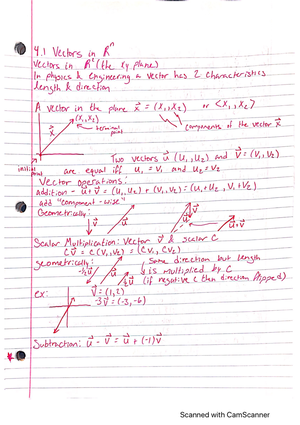 4.1 Vectors in Rⁿ
Vectors in R² (the xy plane)
In physics & Engineering a vector has 2 characteristics
length & direction
A vector in the plane x⃗ = (x₁, x₂) or <x₁, x₂>
(x₁, x₂)
terminal point
x⃗
components of the vector x⃗
initial point
Two vectors u⃗ (u₁, u₂) and v⃗ = (v₁, v₂)
are equal iff u₁ = v₁ and u₂ = v₂
Vector operations:
addition - u⃗ + v⃗ = (u₁, u₂) + (v₁, v₂) = (u₁ + u₂, v₁ + v₂)
add "component-wise"
Geometrically:
v⃗
u⃗
u⃗
v⃗
u⃗+v⃗
Scalar Multiplication: Vector v⃗ & scalar c
cv⃗ = c(v₁, v₂) = (cv₁, cv₂)
geometrically:
-½u⃗
u⃗
½u⃗
Same direction but length
is multiplied by c
(if negative c then direction flipped)
ex:
v⃗ = (1, 2)
-3v⃗ = (-3, -6)
Subtraction: u⃗ - v⃗ = u⃗ + (-1)v⃗
Scanned with CamScanner